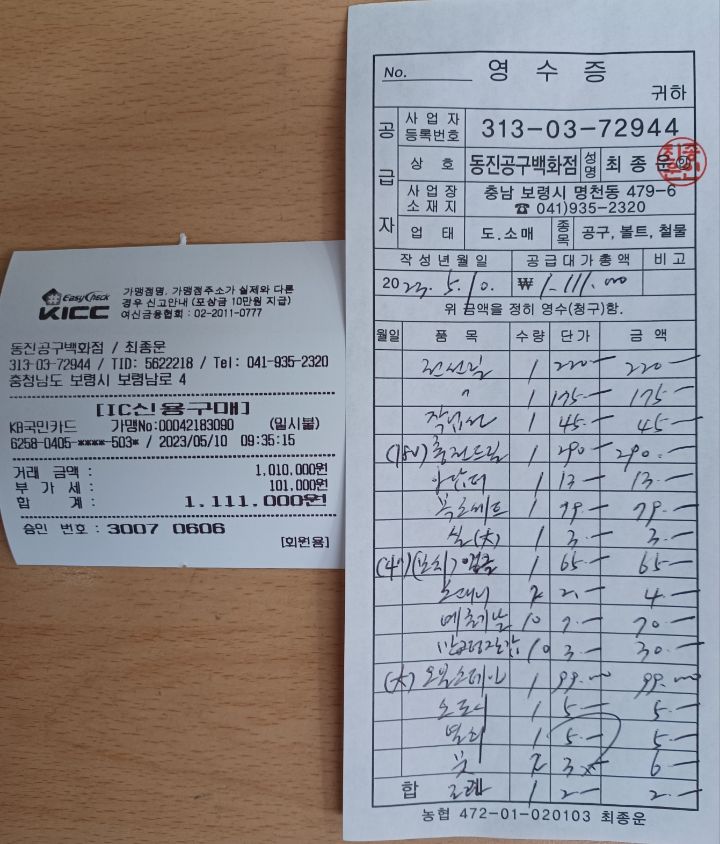 EasyCheck
KICC
가맹점명, 가맹점주소가 실제와 다른
경우 신고안내 (포상금 10만원 지급)
여신금융협회 : 02-2011-0777
동진공구백화점 / 최종운
313-03-72944 / TID: 5622218 / Tel: 041-935-2320
충청남도 보령시 보령남로 4
[IC신용구매]
KB국민카드 가맹No:00042183090 (일시불)
6258-0405-****-503* / 2023/05/10 09:35:15
거래 금액 : 1,010,000원
부 가 세 : 101,000원
합 계 : 1,111,000원
승인 번호 : 3007 0606
[회원용]
No.
영 수 증
귀하
공급자
사업자등록번호 313-03-72944
상 호 동진공구백화점 성명 최종운 인
사업장소재지 충남 보령시 명천동 479-6
☎ 041)935-2320
업 태 도.소매 종목 공구, 볼트, 철물
작성년월일 공급대가총액 비고
2023. 5. 10. ₩ 1,111.00
위 금액을 정히 영수(청구)함.
월일 품 목 수량 단가 금 액
전선릴 1 220- 220-
〃 1 175- 175-
작업선 1 45- 45-
(18V) 충전드릴 1 290- 290.-
1 13- 13.-
1 79- 79.-
실(大) 1 3- 3.-
(4") 1 65- 65-
2 2.- 4-
10 7.- 70-
10 3- 30.-
(大) 1 99.00 99.00
1 5- 5-
1 5- 5-
붓 2 3 6-
합 계 1 2- 2.-
농협 472-01-020103 최종운